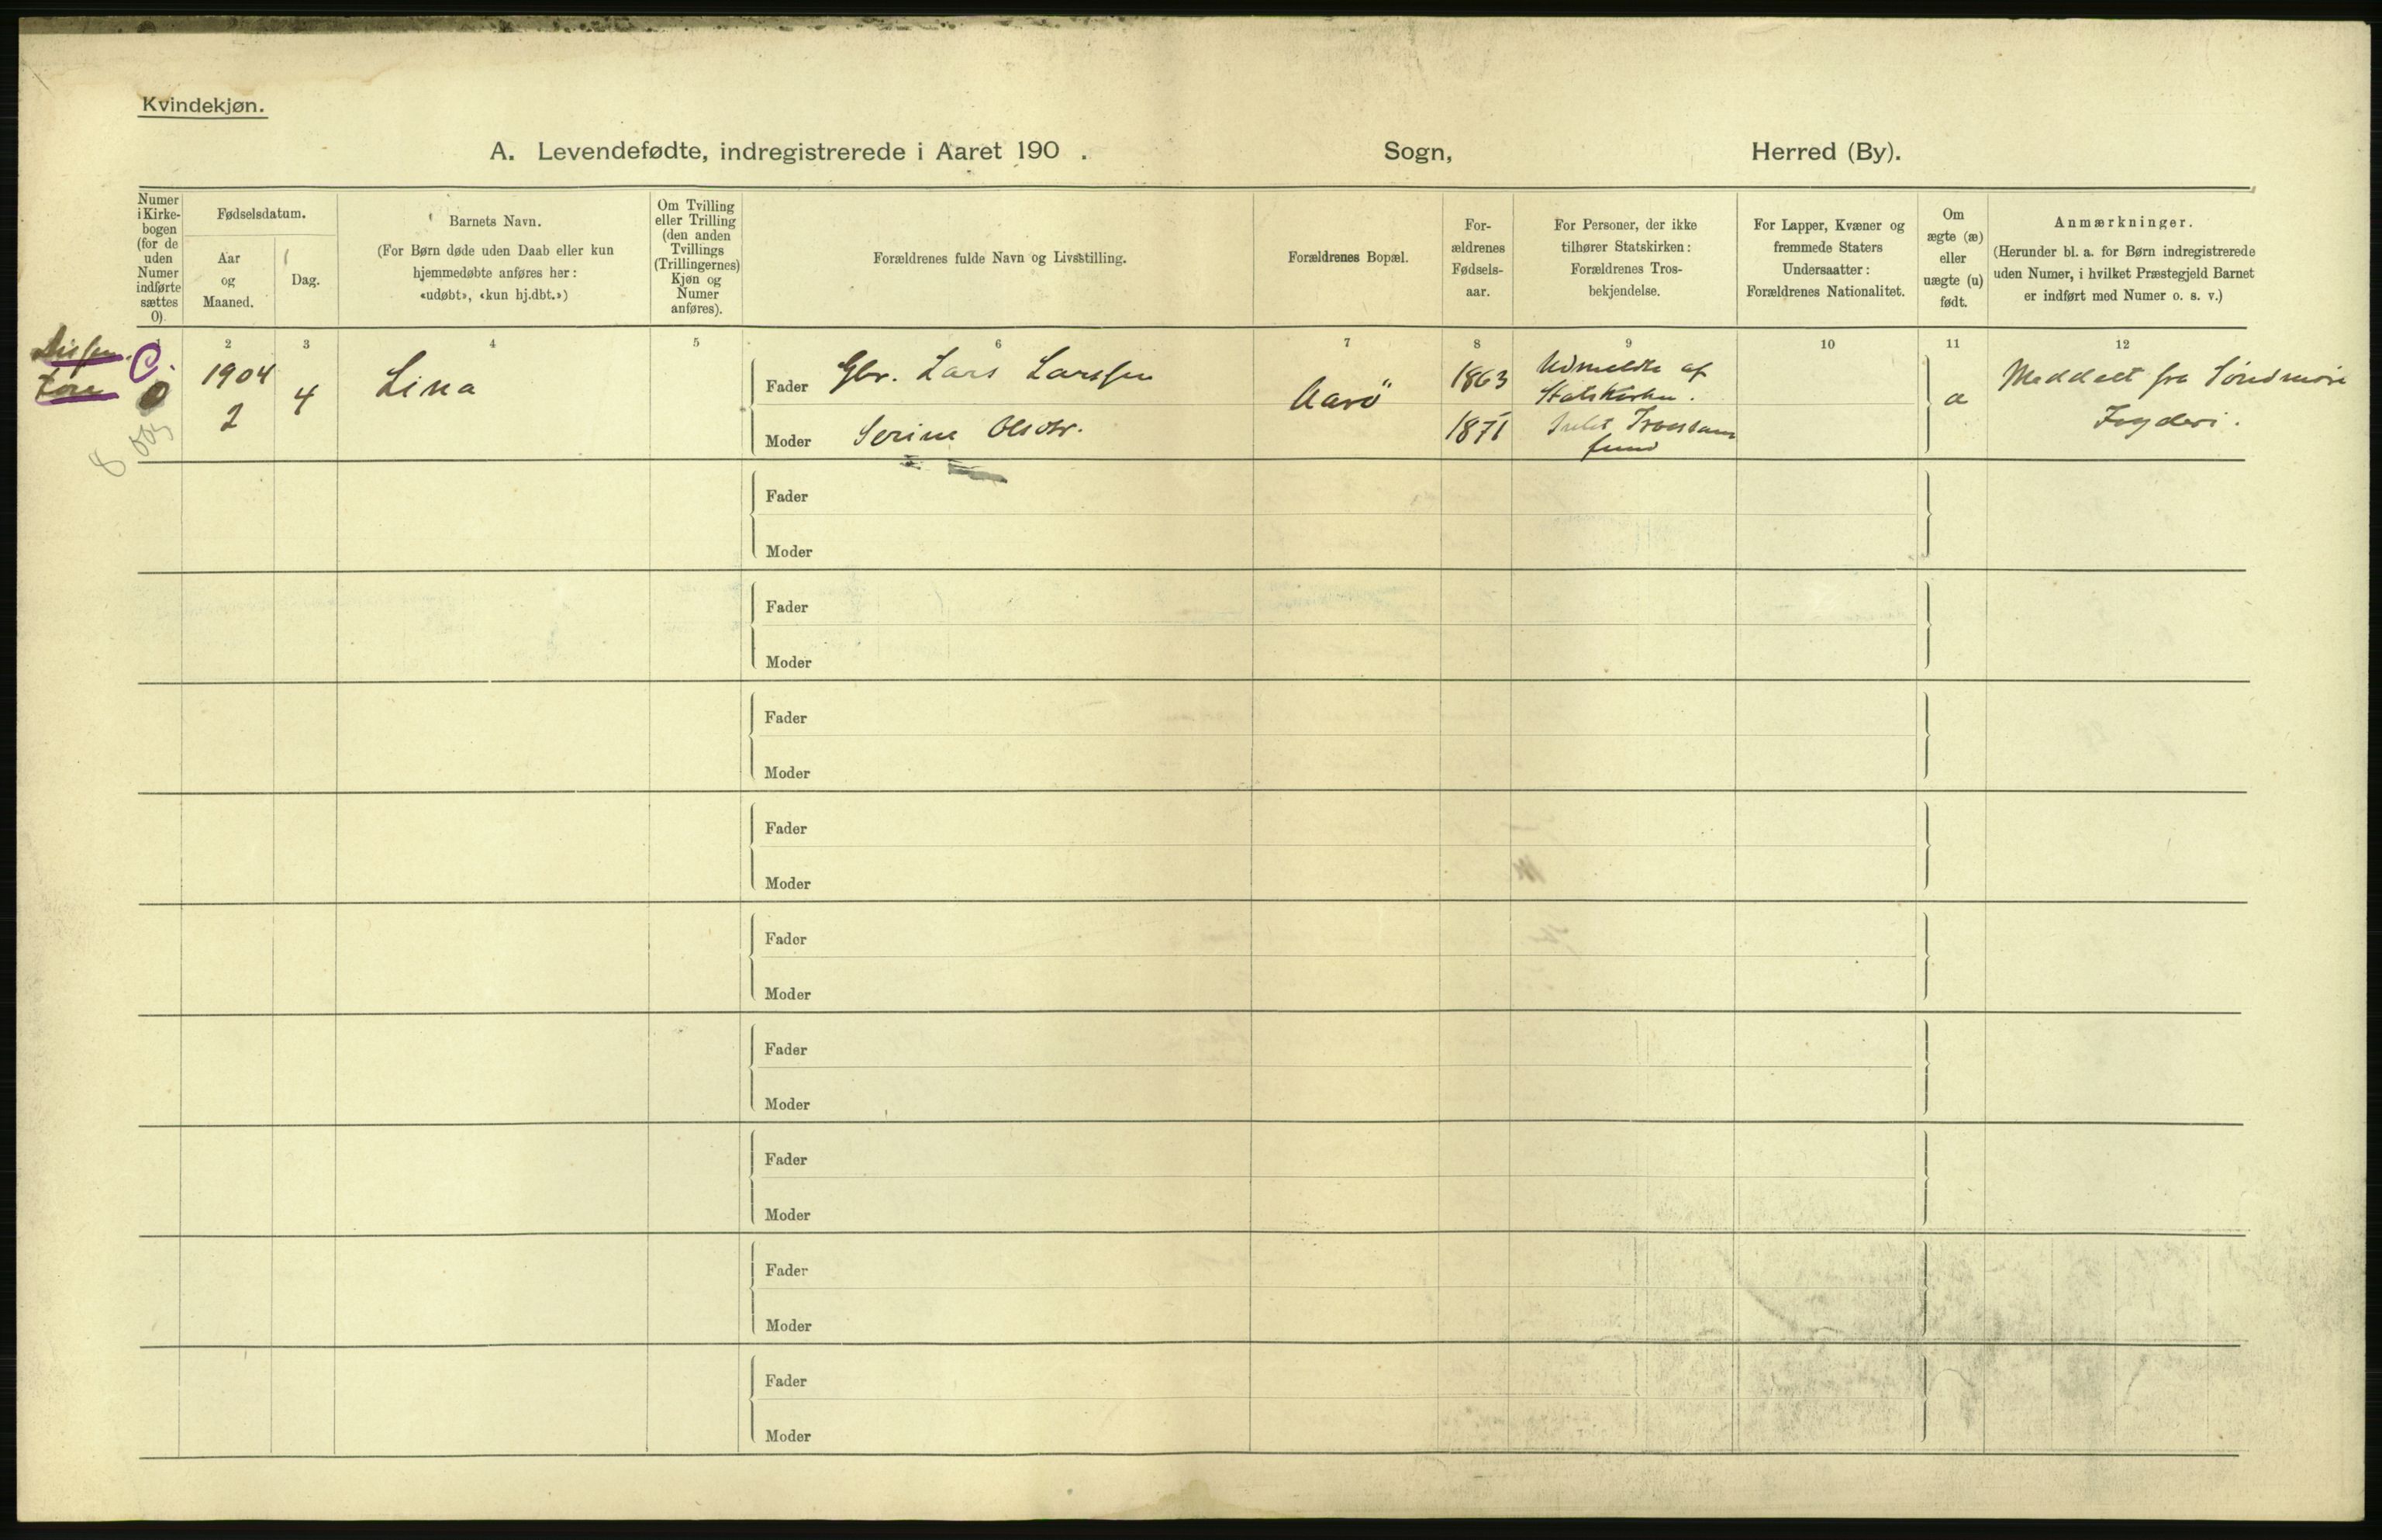 Kvindekjøn.
A. Levendefødte, indregistrerede i Aaret 190 . Sogn, Herred (By).
Numer i Kirke- bogen (for de uden Numer indførte sættes 0)
Fødselsdatum.
Aar og Maaned.
Dag.
Barnets Navn.
(For Børn døde uden Daab eller kun
hjemmedøbte anføres her:
«udøbt», «kun hj.dbt.»)
Om Tvilling
eller Trilling
(den anden
Tvillings
(Trillingernes)
Kjøn og
Numer
anføres).
Forældrenes fulde Navn og Livsstilling.
Forældrenes Bopæl.
For-
ældrenes
Fødsels-
aar.
For Personer, der ikke
tilhører Statskirken:
Forældrenes Tros-
bekjendelse.
For Lapper, Kvæner og
fremmede Staters
Undersaatter:
Forældrenes Nationalitet.
Om
ægte (æ)
eller
uægte (u)
født.
Anmærkninger.
(Herunder bl. a. for Børn indregistrerede
uden Numer, i hvilket Præstegjeld Barnet
er indført med Numer o. s. v.)
1 2 3 4 5 6 7 8 9 10 11 12
Dissen-
tere
C.
0
1904
2
4
Lina
Fader Gbr. Lars Larssen
Moder Serine Olsdtr.
Aarö
1863
1871
Udmeldte af
Statskirken.
Intet Troessam
fund
æ
Meddelt fra Söndmöre
Fogderi.
8
Fader
Moder
Fader
Moder
Fader
Moder
Fader
Moder
Fader
Moder
Fader
Moder
Fader
Moder
Fader
Moder
Fader
Moder